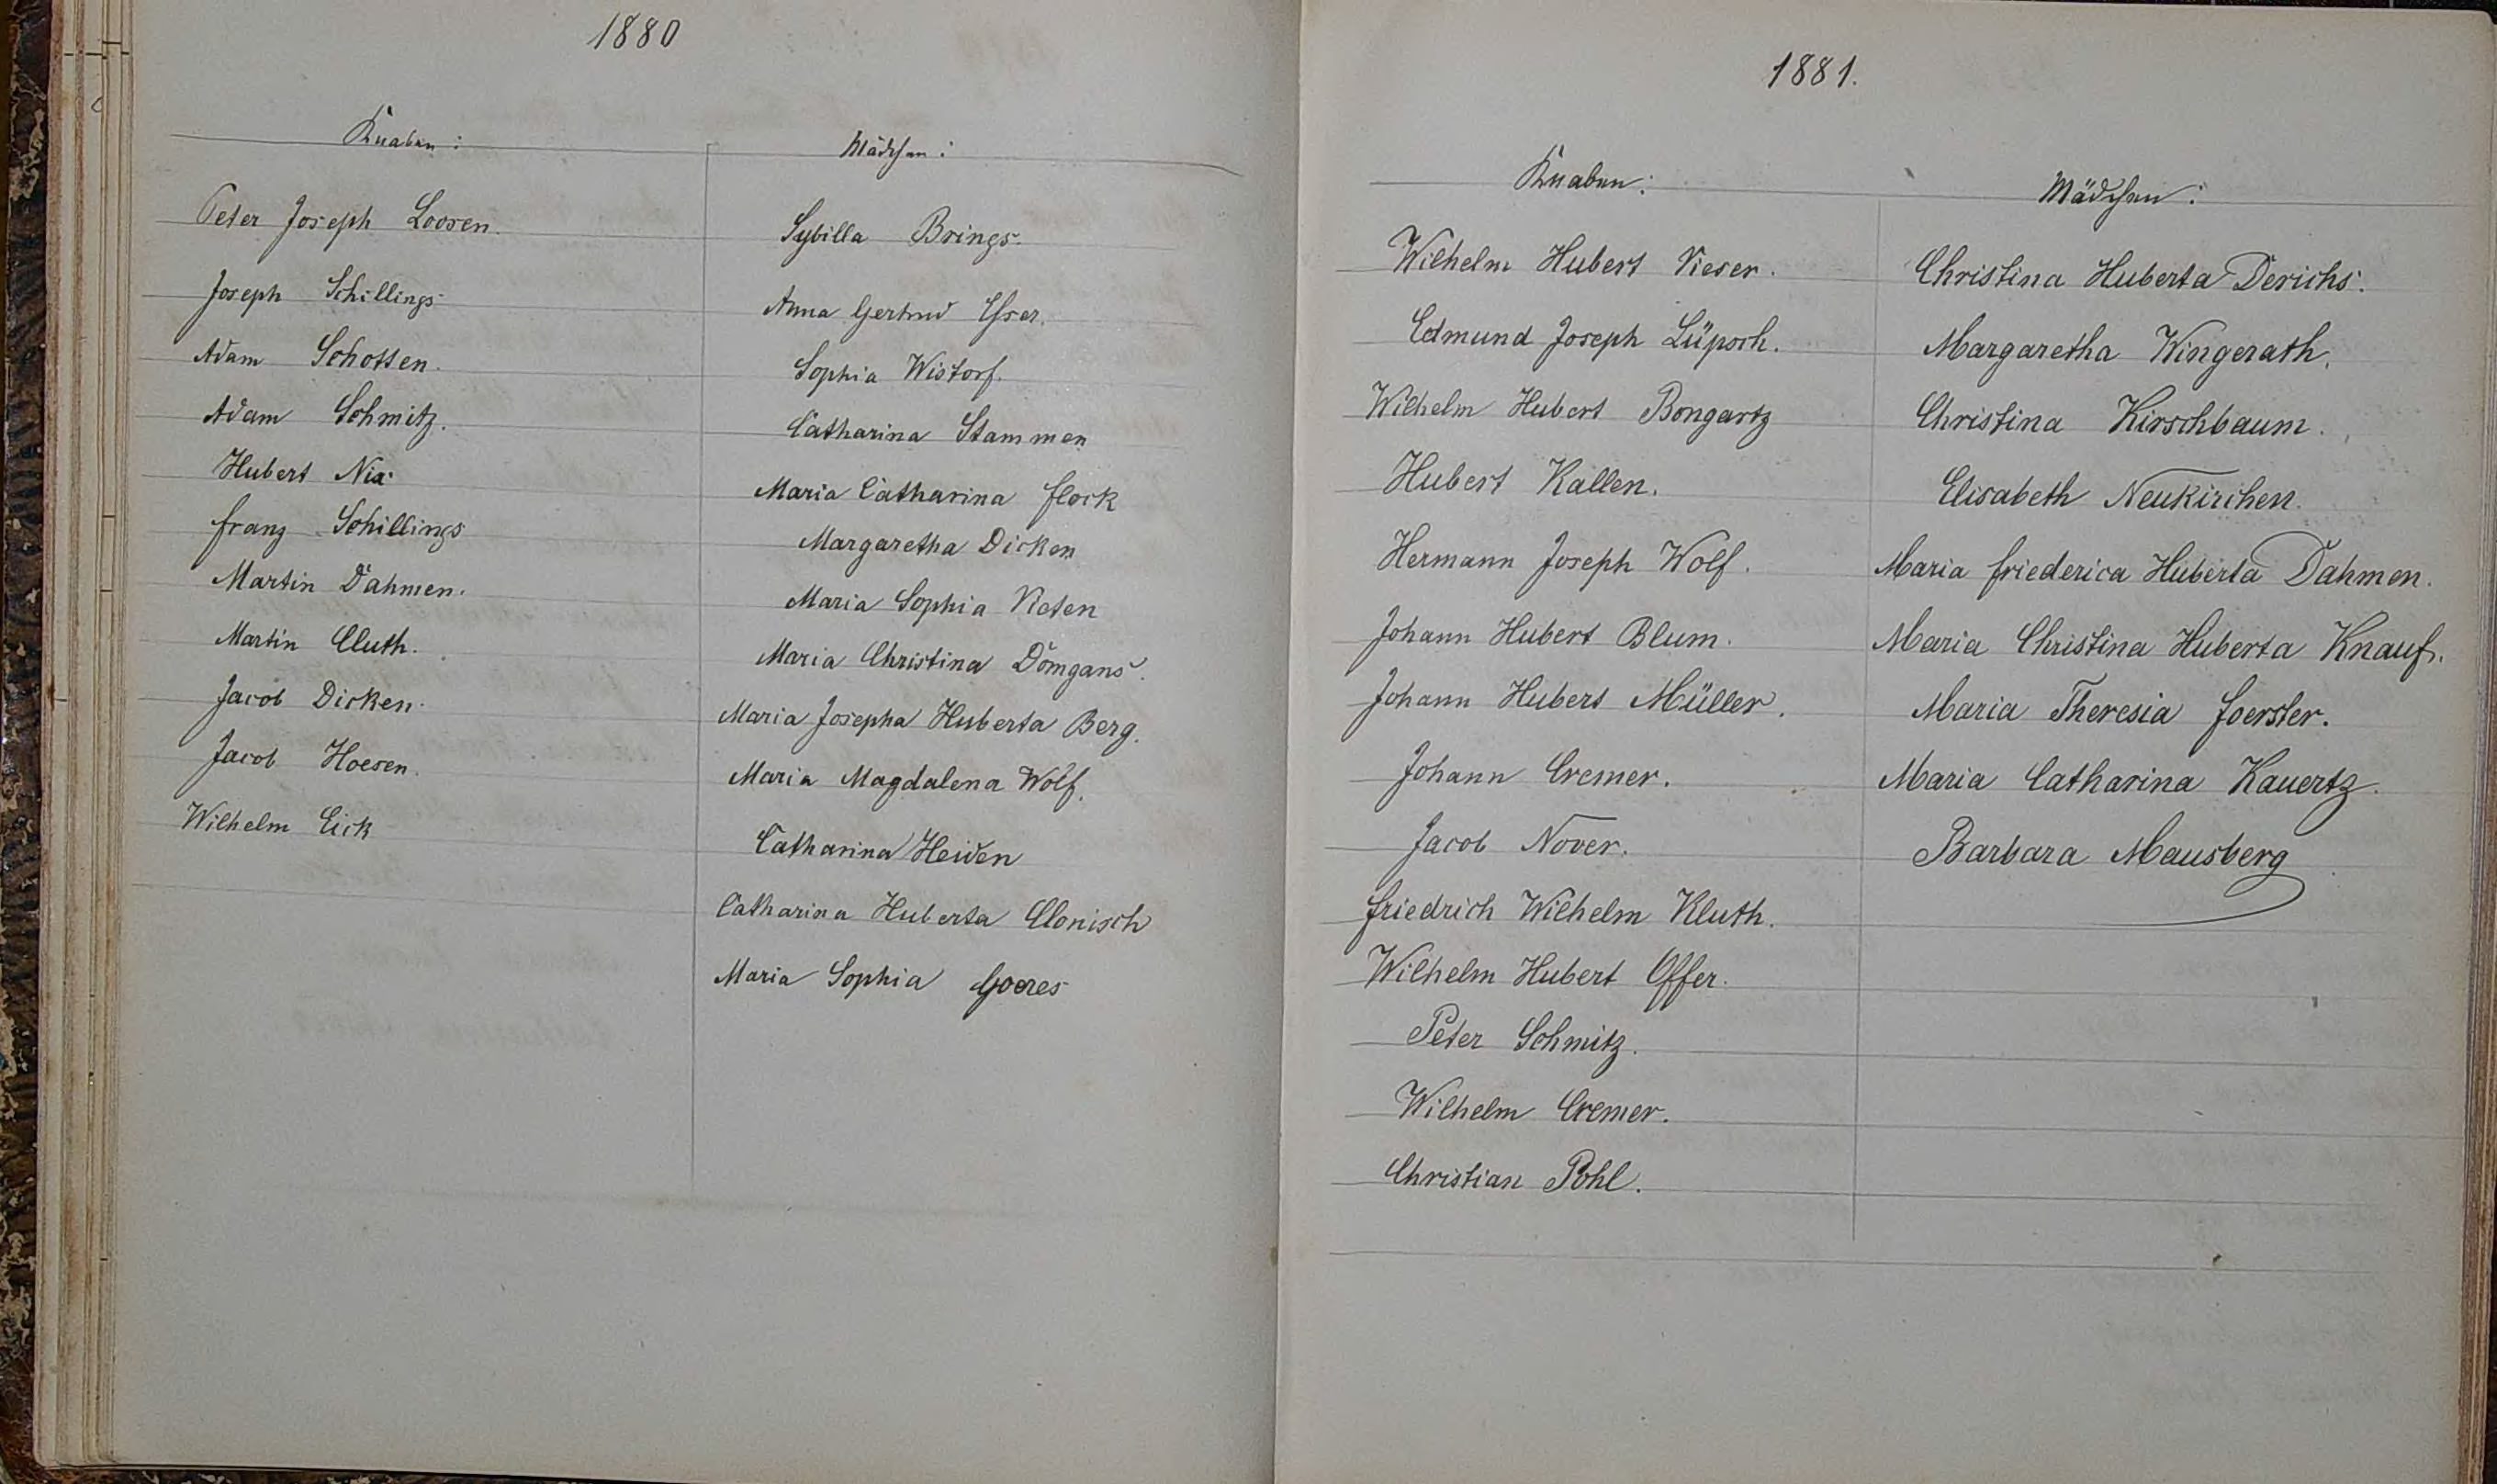 1880
Knaben:
Peter Joseph Loosen.
Joseph Schillings
Adam Schotten.
Adam Schmitz.
Hubert Nix
Franz Schillings
Martin Dahmen.
Martin Cluth.
Jacob Dicken.
Jacob Hoesen.
Wilhelm Eick
Mädchen:
Sybilla Brings.
Anna Gertrud
Sophia Wistorf.
Catharina Stammen
Maria Catharina Flock
Margaretha Dicken
Maria Sophia Vieten
Maria Christina Domgans.
Maria Josepha Huberta Berg.
Maria Magdalena Wolf.
Catharina Heiden
Catharina Huberta Clonisch
Maria Sophia Goeres
1881.
Knaben:
Wilhelm Hubert Vieser.
Edmund Joseph Lüpsch.
Wilhelm Hubert Bongartz
Hubert Kallen.
Hermann Joseph Wolf.
Johann Hubert Blum.
Johann Hubert Müller.
Johann Cremer.
Jacob Nover.
Friedrich Wilhelm Kluth.
Wilhelm Hubert Offer.
Peter Schmitz.
Wilhelm Cremer.
Christian Pohl.
Mädchen:
Christina Huberta Derichs.
Margaretha Wingerath.
Christina Kirschbaum.
Elisabeth Neukirchen.
Maria Friederica Huberta Dahmen.
Maria Christina Huberta Knauf.
Maria Theresia Foerster.
Maria Catharina Kauertz.
Barbara Mausberg